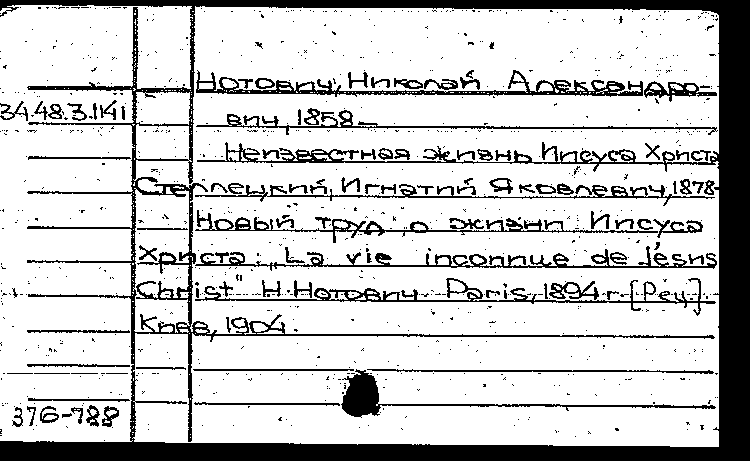 Нотович, Николай Александро-
34.48.3.1141
вич, 1858 —
Неизвестная жизнь Иисуса Христа
Стеллецкий, Игнатий Яковлевич, 1878-
Новый труд о жизни Иисуса
Христа: „La vie inconnue de Jésus
Christ" Н. Нотович. Paris, 1894 г. [Рец].
Киев, 1904.
376-788